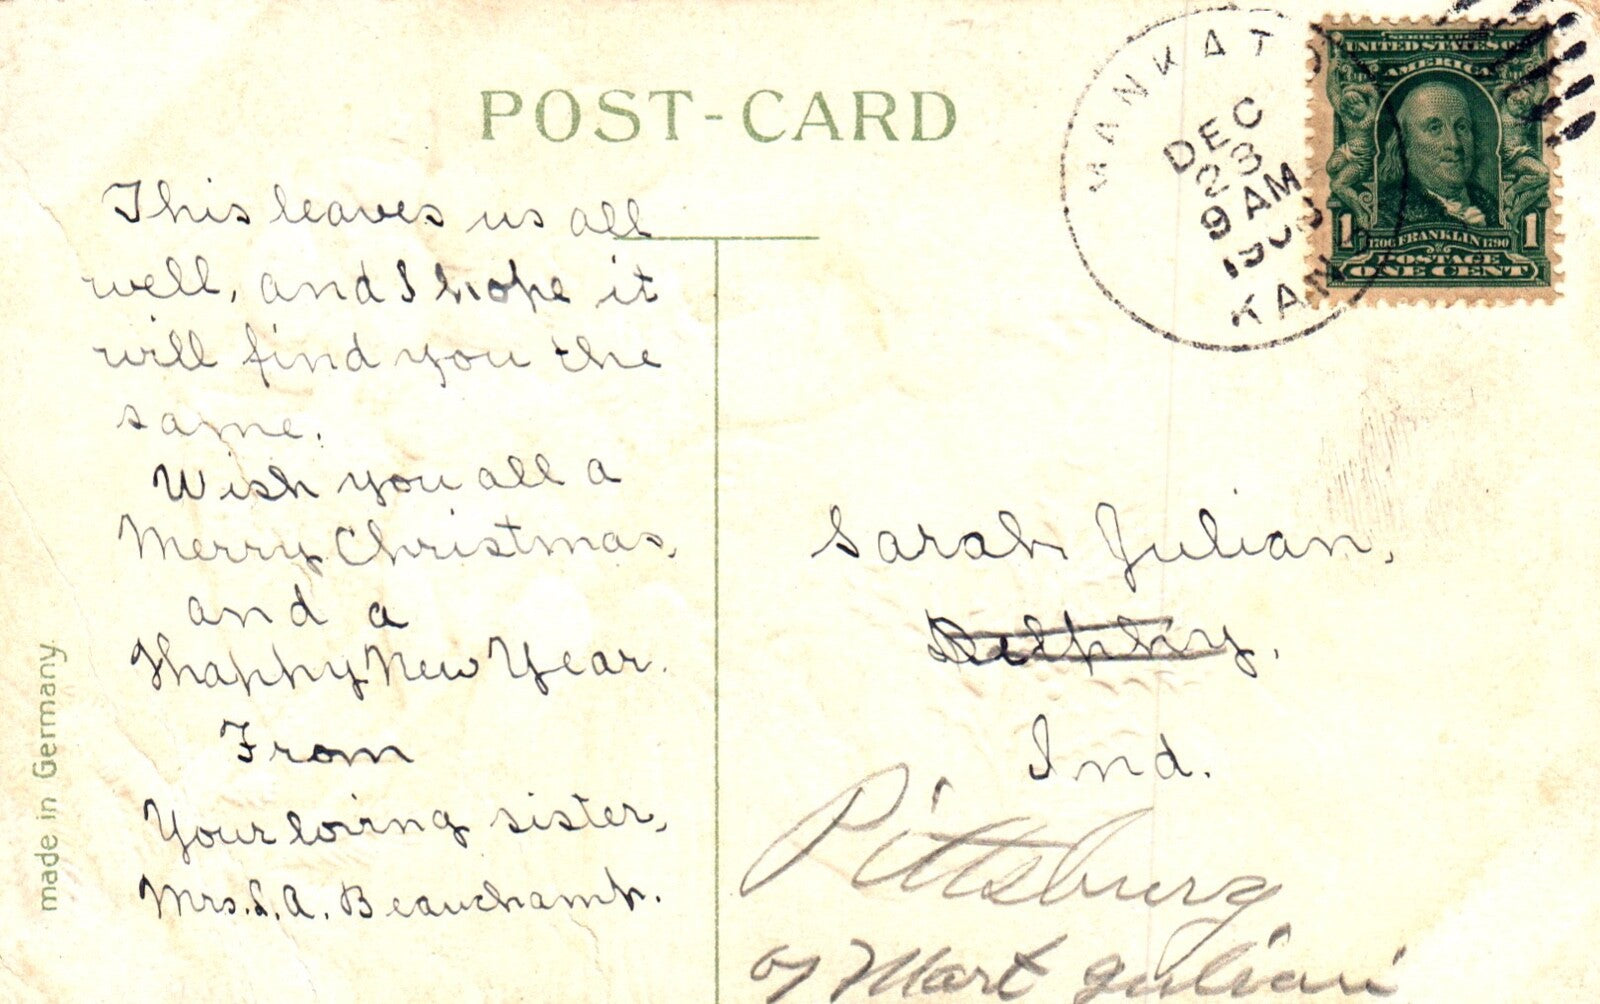 POST-CARD
MANKATO
DEC
23
9 AM
KAN
SERIES 1902
UNITED STATES OF
AMERICA
1 1706 FRANKLIN 1790 1
POSTAGE
ONE CENT
This leaves us all
well, and I hope it
will find you the
same.
Wish you all a
Merry Christmas,
and a
Happy New Year.
From
Your loving sister,
Mrs. S. A. Beauchamp.
Sarah Julian,
Delphy.
Ind.
Pittsburg
Mart Julian
made in Germany.